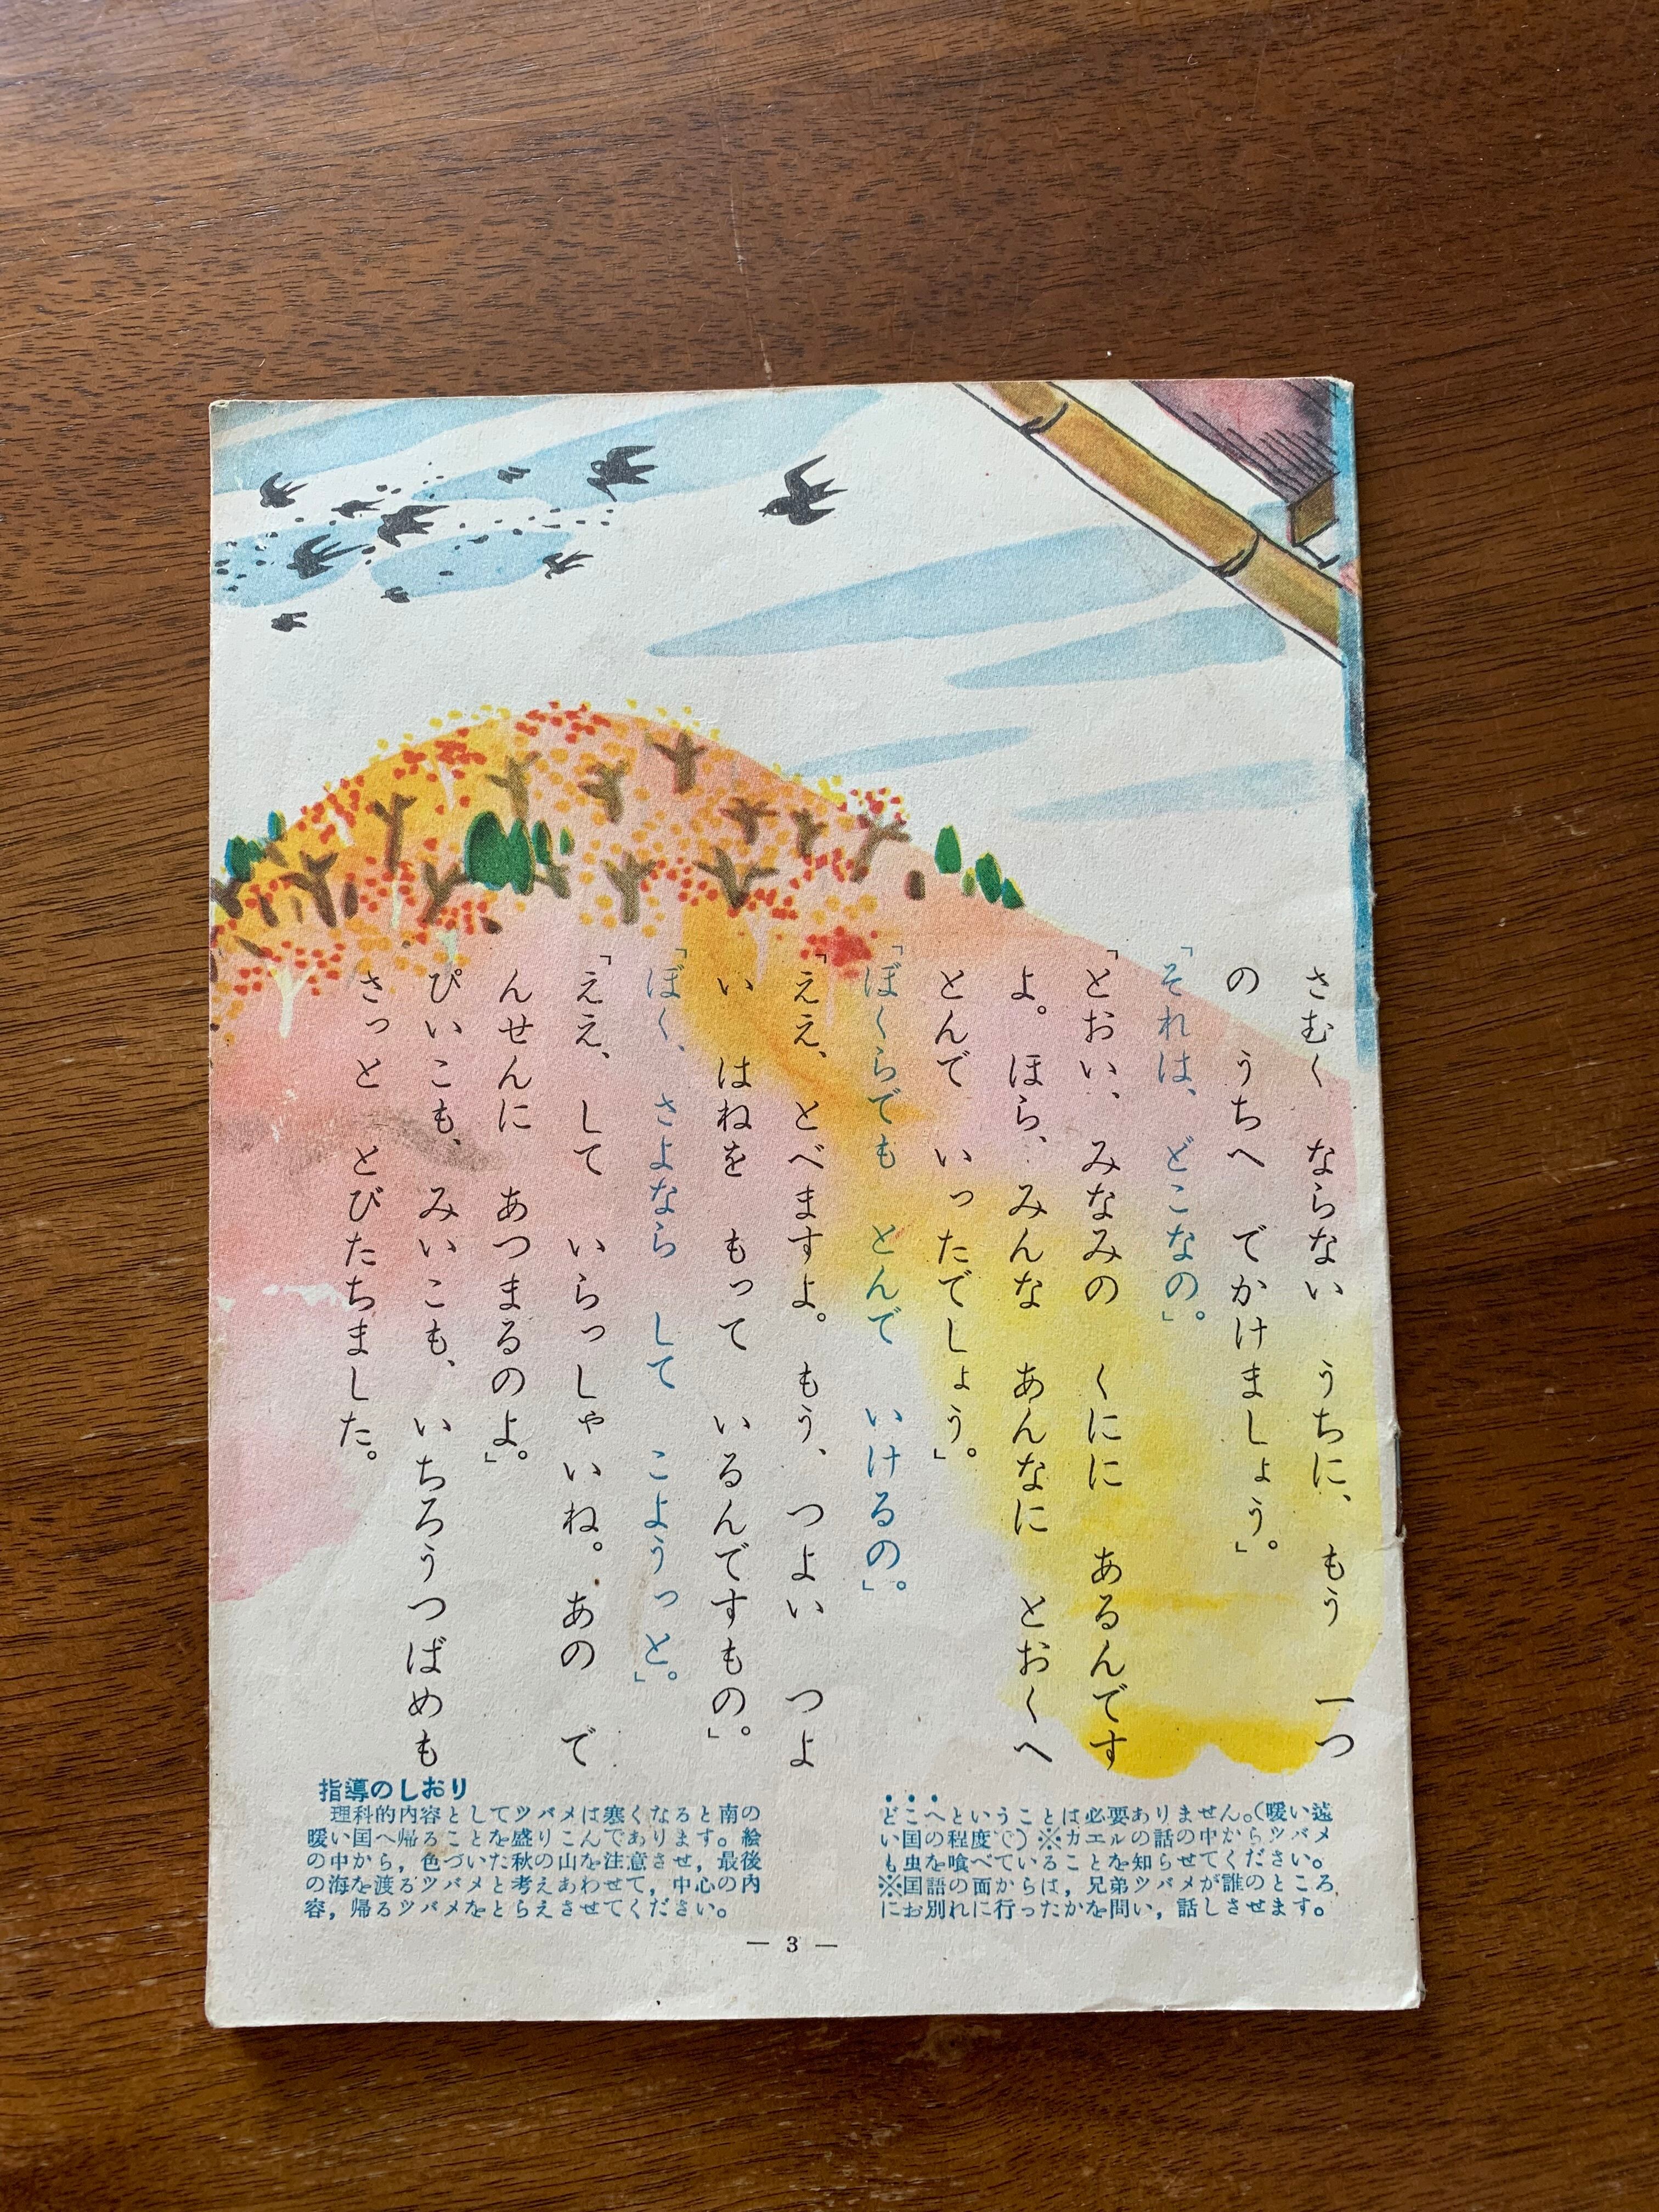 さむく ならない うちに、もう 一つ
の うちへ でかけましょう。」
「それは、どこなの。」
「とおい、みなみの くにに あるんです
よ。ほら、みんな あんなに とおくへ
とんで いったでしょう。」
「ぼくらでも とんで いけるの。」
「ええ、とべますよ。もう、つよい つよ
い はねを もって いるんですもの。」
「ぼく、さよなら して こようっと。」
「ええ、して いらっしゃいね。あの で
んせんに あつまるのよ。」
ぴいこも、みいこも、いちろうつばめも
さっと とびたちました。
指導のしおり
理科的内容としてツバメは寒くなると南の
暖い国へ帰ることを盛りこんであります。絵
の中から，色づいた秋の山を注意させ，最後
の海を渡るツバメと考えあわせて，中心の内
容，帰るツバメをとらえさせてください。
どこへということは必要ありません。（暖い遠
い国の程度で）※カエルの話の中からツバメ
も虫を喰べていることを知らせてください。
※国語の面からは，兄弟ツバメが誰のところ
にお別れに行ったかを問い，話しさせます。
— 3 —